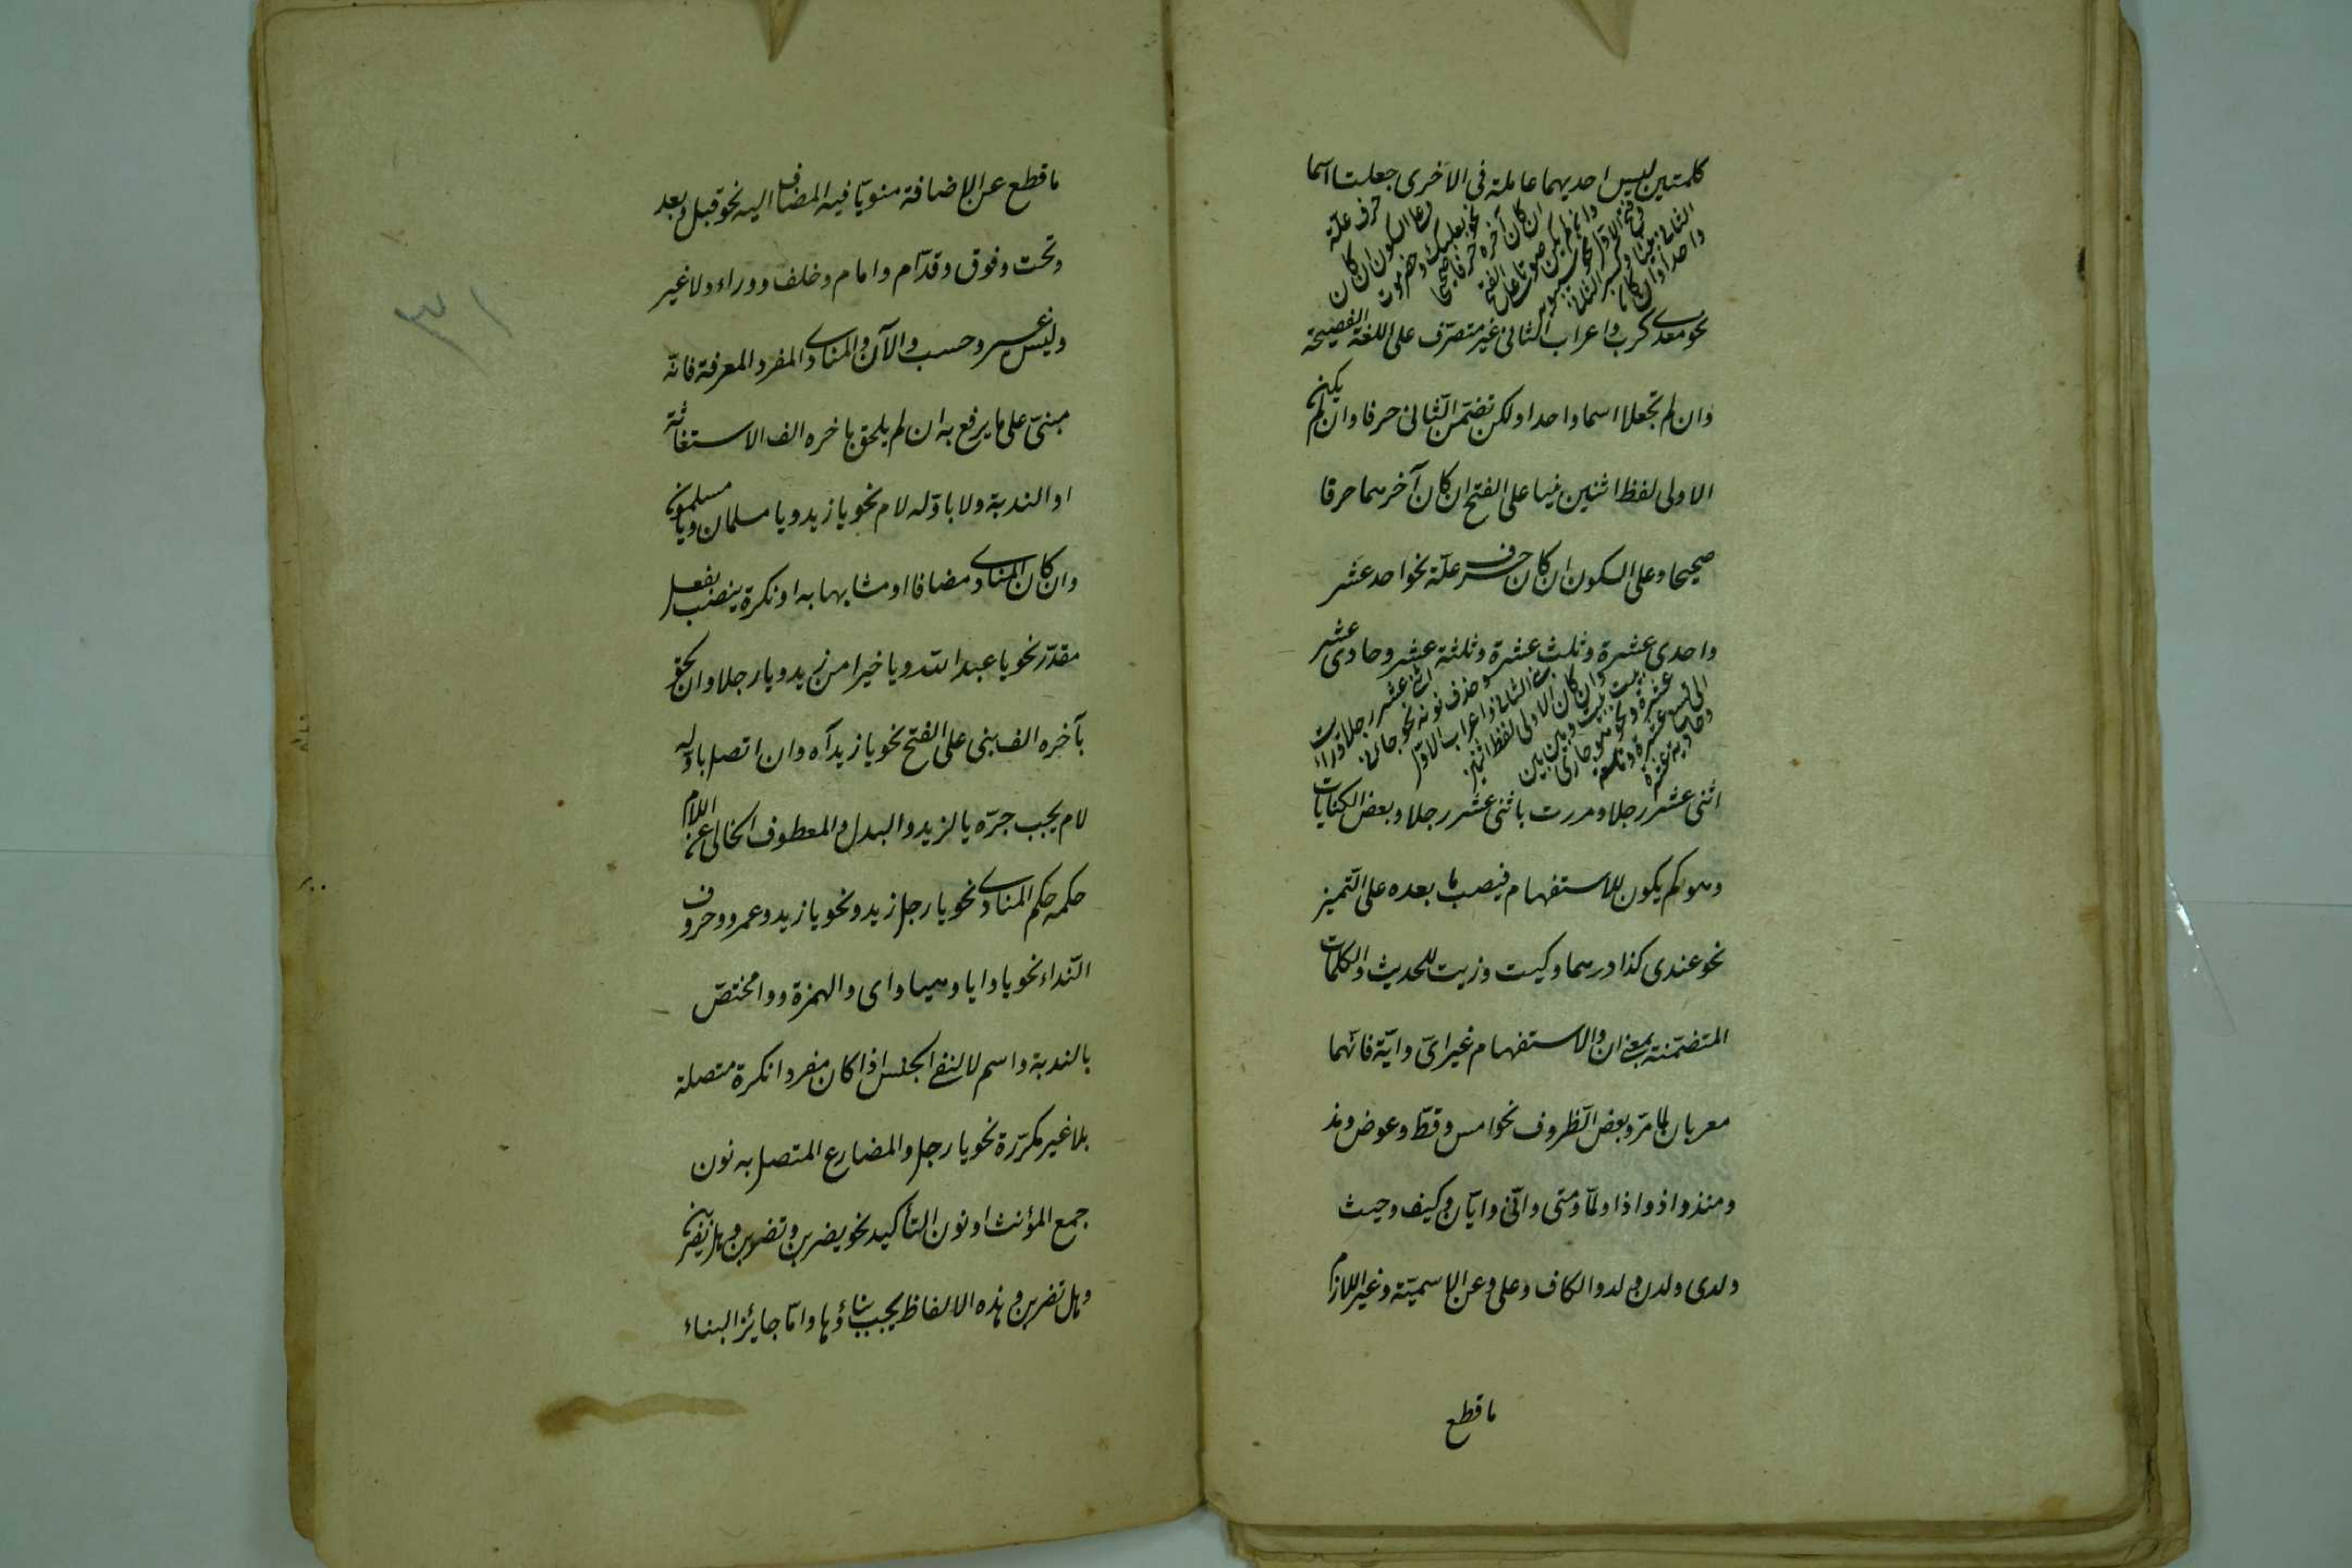 كلمتين ليس احديهما عاملة فى الاخرى جعلت اسما
واحدا وان كان
الثانى صوتا بنيا وكسر الثانى
وفتح الاول نحو سيبويه
وان لم يكن صوتا على الفتح
ان كان آخره حرفا صحيحا
نحو بعلبك وحضرموت
وعلى السكون ان كان
حرف علّة
نحو معدى كرب واعراب الثانى غير متصرّف على اللغة الفصيحة
وان لم تجعلا اسما واحدا ولكن تضمّن الثانى حرفا وان لم يكن
الاولى لفظ اثنين بنيا على الفتح ان كان آخرهما حرفا
صحيحا وعلى السكون ان كان حرف علّة نحو احد عشر
واحدى عشرة وثلث عشرة وثلثة عشر وحادى عشر
وحادية عشرة
الى تاسع عشر وتاسعة
عشرة ونحو هو جارى
بيت بيت وبين بين
وان كان الاولى لفظ اثنين
بنى الثانى واعراب الاول
وحذف نونه نحو جاءنى
اثنا عشر رجلا ورايت
اثنى عشر رجلا ومررت باثنى عشر رجلا وبعض الكنايات
وهو كم يكون للاستفهام فينصب ما بعده على التّميز
نحو عندى كذا درهما وكيت وزيت للحديث والكلمات
المتضمّنة بمعنى ان والاستفهام غير اىّ وايّة فانّهما
معربان لما مرّ وبعض الظّروف نحو امس وقطّ وعوض ومذ
ومنذ واذ واذا ولمّا ومتى وانّى وايّان وكيف وحيث
ولدى ولدن ولد والكاف وعلى وعن الاسميّة وغير اللازم
ما قطع
ما قطع عن الاضافة منويّا فيه المضاف اليه نحو قبل وبعد
وتحت وفوق وقدّام وامام وخلف ووراء ولا غير
وليس غير وحسب والآن والمنادى المفرد المعرفة فانّه
مبنىّ على ما يرفع به ان لم يلحق باخره الف الاستغاثة
او الندبة ولا باوّله لام نحو يا زيد ويا مسلمان ويا مسلمون
وان كان المنادى مضافا او مشابها به او نكرة ينصب بفعل
مقدّر نحو يا عبد الله ويا خيرا من زيد ويا رجلا وان لحق
بآخره الف بنى على الفتح نحو يا زيدآه وان اتصل باوّله
لام يجب جرّه يا لزيد والبدل والمعطوف الخالى عن اللام
حكمه حكم المنادى نحو يا رجل زيد ونحو يا زيد وعمرو وحروف
النّداء نحو يا وايا وهيا واى والهمزة ووا مختصّ
بالندبة واسم لا لنفى الجنس اذا كان مفردا نكرة متصلة
بلا غير مكرّرة نحو يا رجل والمضارع المتصل به نون
جمع المؤنث او نون التأكيد نحو يضربن وتضربن وهل يضربنّ
وهل تضربن وهذه الالفاظ يجب بناؤها وامّا جايز البناء
٣١